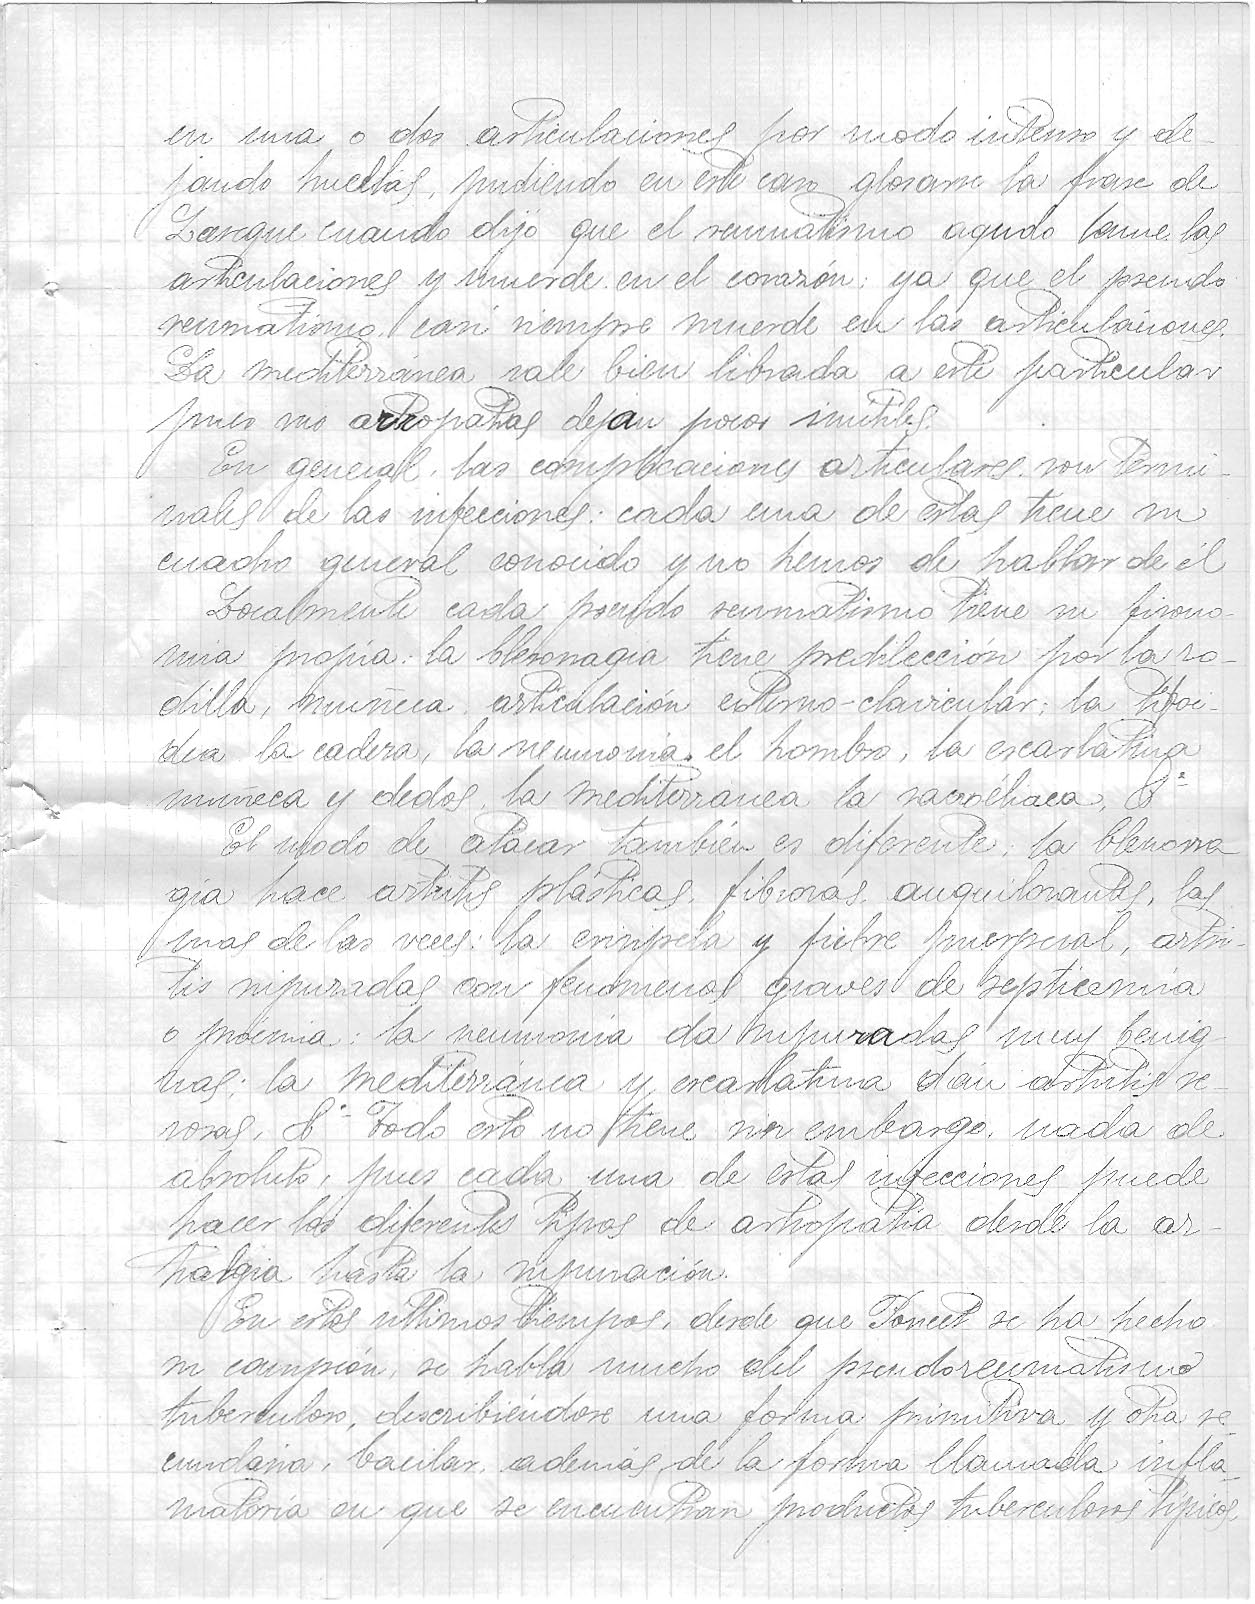 en una o dos articulaciones por modo intenso y de-
jando huellas, pudiendo en este caso glosarse la frase de
Lasegue cuando dijo que el reumatismo agudo lame las
articulaciones y muerde en el corazón: ya que el pseudo
reumatismo casi siempre muerde en las articulaciones.
La mediterránea sale bien librada a este particular
pues sus artropatias dejan pocos inútiles.
En general, las complicaciones articulares son termi-
nales de las infecciones: cada una de estas tiene su
cuadro general conocido y no hemos de hablar de él
Localmente cada pseudo reumatismo tiene su fisono-
mia propia: la blenoragia tiene predilección por la ro-
dilla, muñeca, articulación esterno-clavicular; la tifoi-
dea la cadera, la neumonia el hombro, la escarlatina
muñeca y dedos, la mediterranea la sacroiliaca, &ª
El modo de atacar también es diferente; la blenorra
gia hace artritis plásticas, fibrosas, anquilosantes, las
mas de las veces: la erisipela y fiebre puerperal, artri-
tis supuradas con fenomenos graves de septicemia
o pioemia: la neumonia da supuradas muy benig-
nas; la mediterránea y escarlatina dán artritis se-
rosas, &ª Todo esto no tiene sin embargo nada de
absoluto, pues cada una de estas infecciones puede
hacer los diferentes tipos de artropatia desde la ar-
tralgia hasta la supuración.
En estos ultimos tiempos, desde que Poncet se ha hecho
su campeón, se habla mucho del pseudoreumatismo
tuberculoso, describiéndose una forma primitiva y otra se-
cundaria, bacilar, además de la forma llamada infla-
matoria en que se encuentran productos tuberculosos típicos